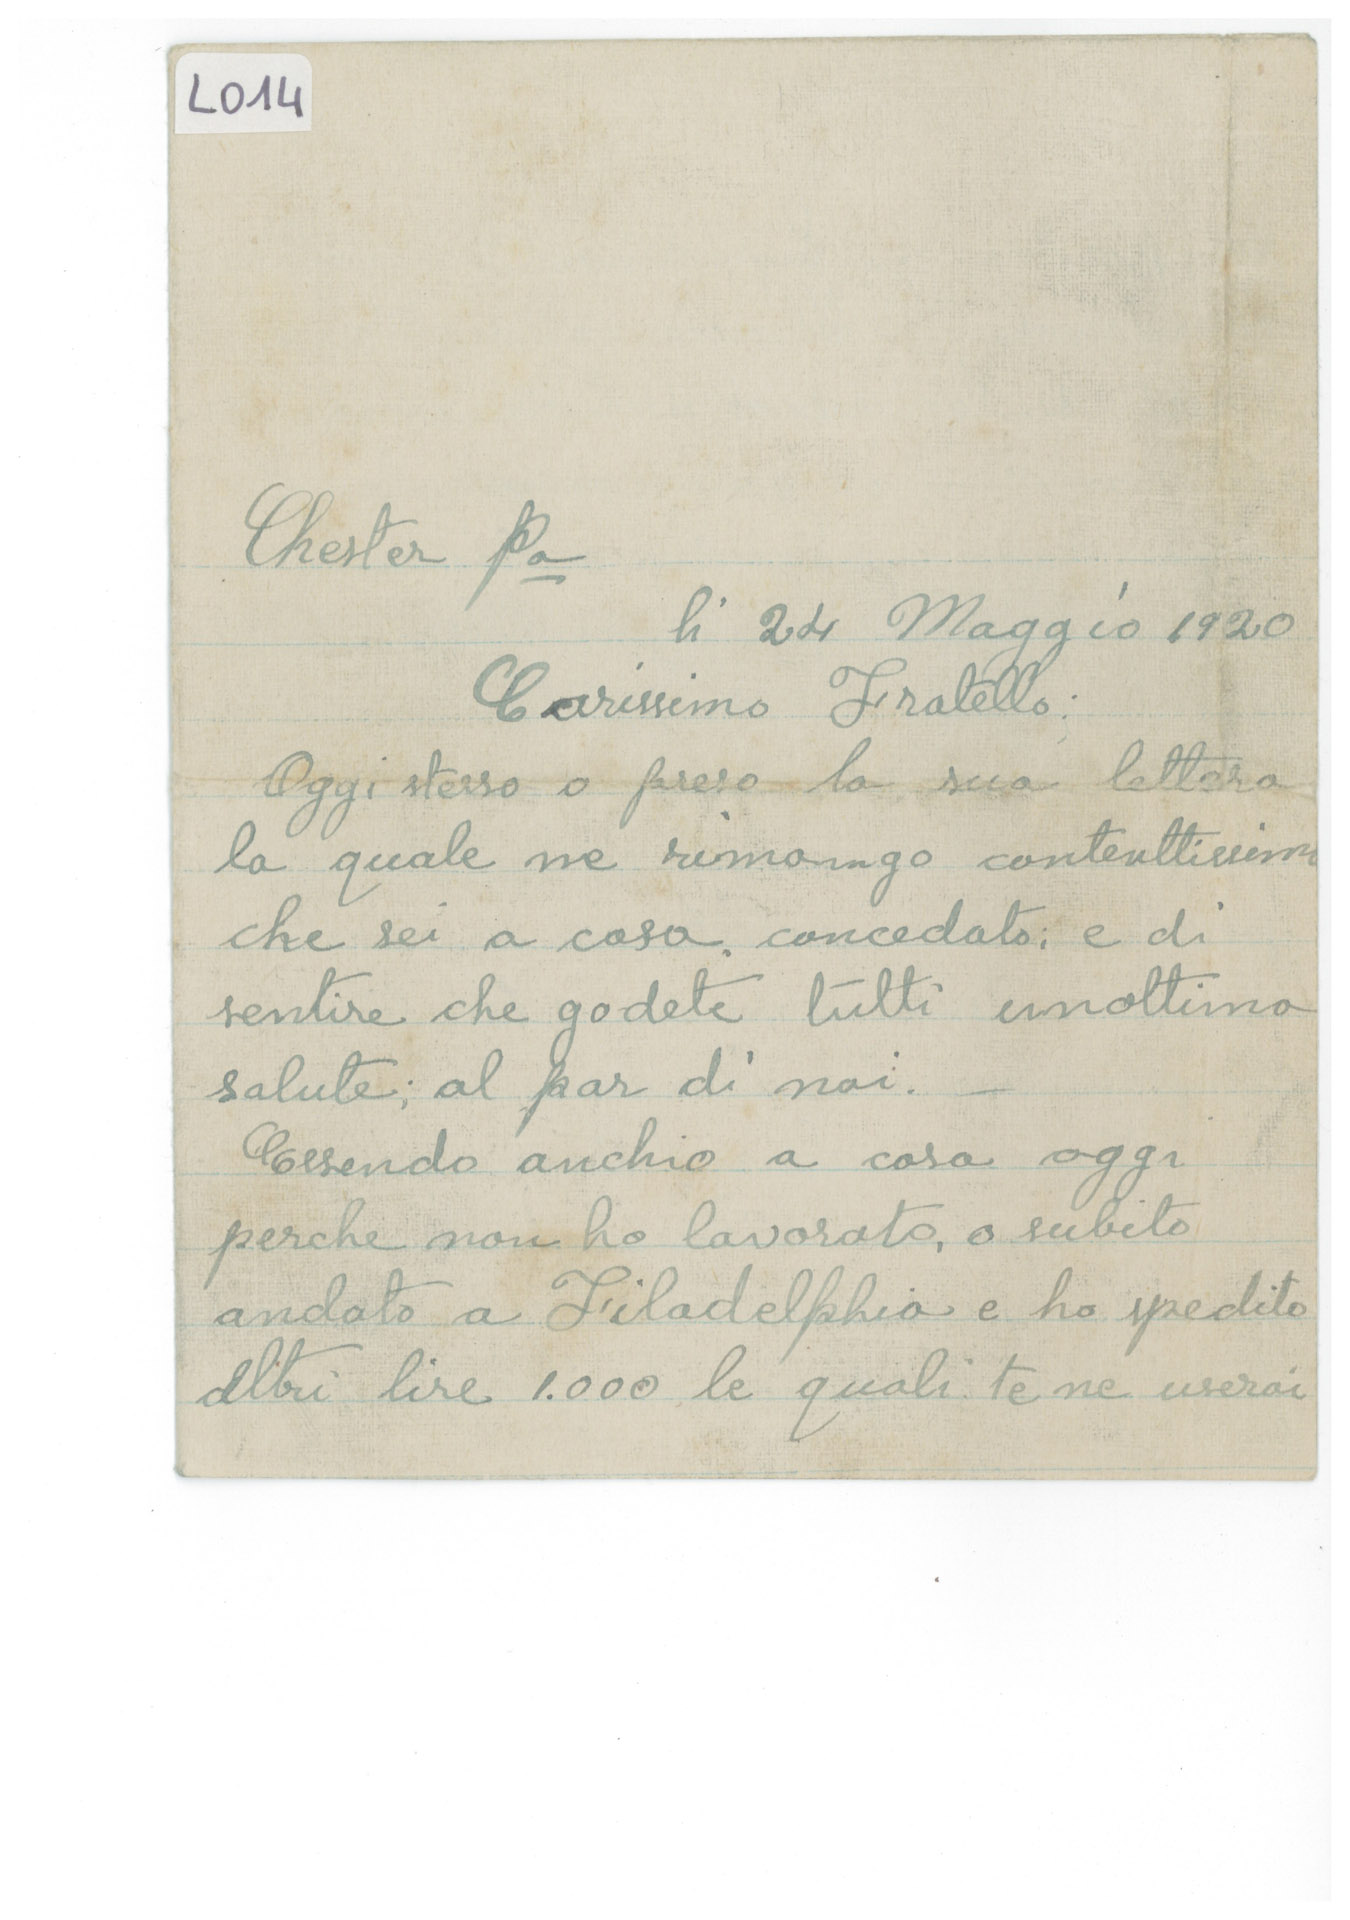 L014
Chester Pa
li 24 Maggio 1920
Carissimo Fratello;
Oggi stesso o preso la sua lettera
la quale ne rimango contenttissimo
che sei a casa, concedato; e di
sentire che godete tutti unottima
salute; al par di noi. —
Essendo anchio a casa oggi
perche non ho lavorato, o subito
andato a Filadelphia e ho spedito
altri lire 1.000 le quali te ne userai